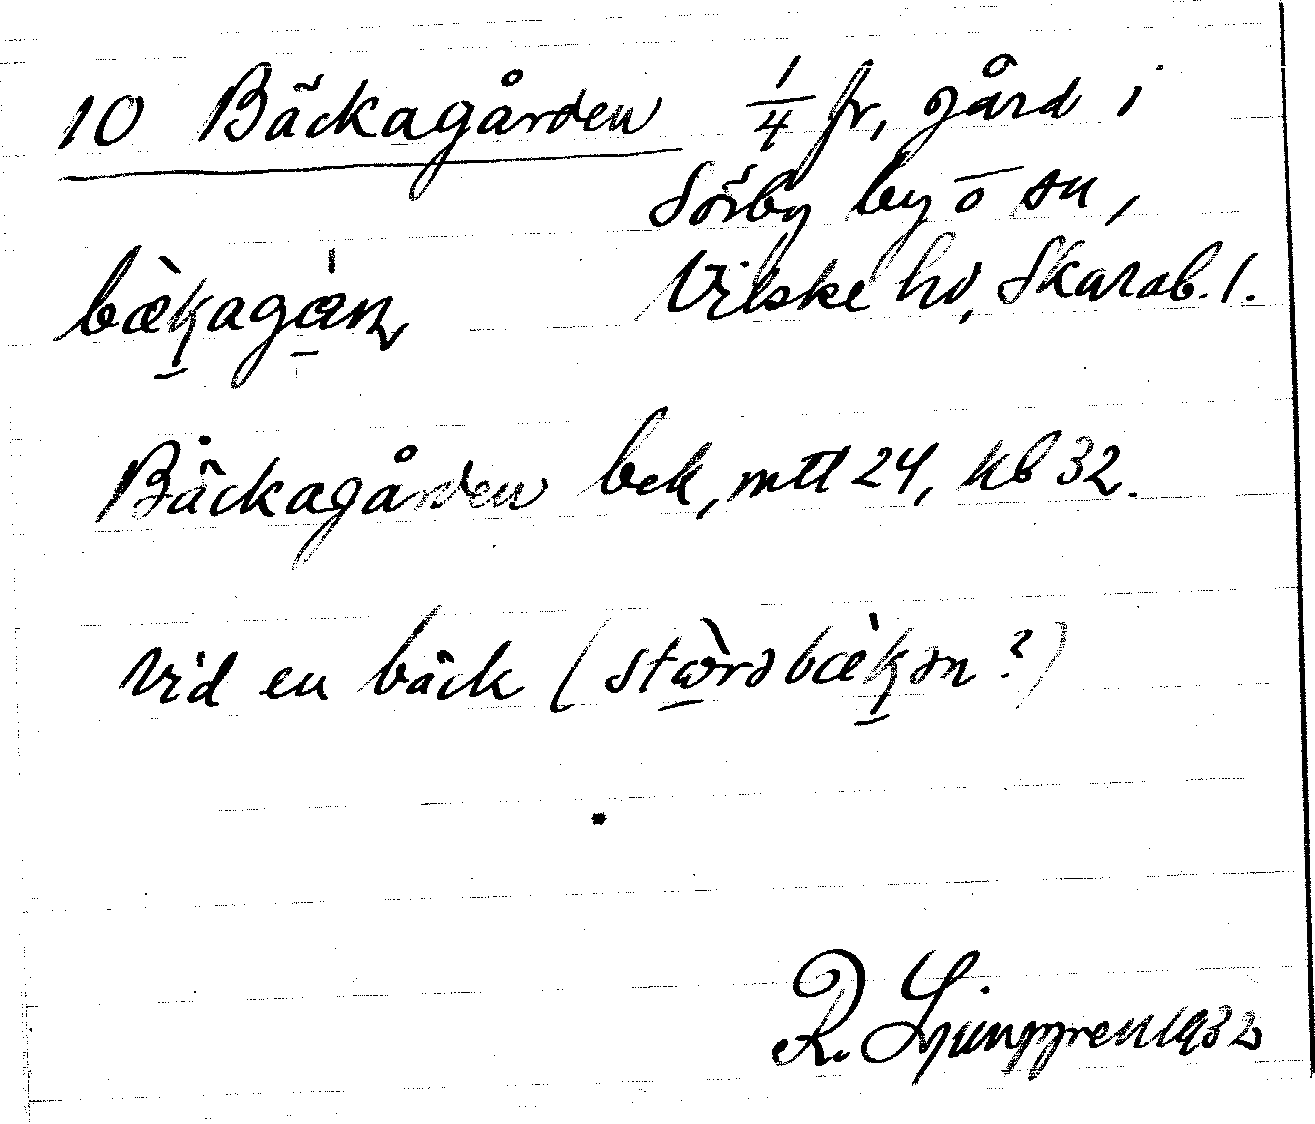 10 Bäckagården 1/4 fr, gård i
Sörby by o sn,
Vilske hd, Skarab. l.
bækagán
Bäckagården bek, mtl 24, kb 32.
Vid en bäck (storəbækən?)
R. Ljunggren 1932